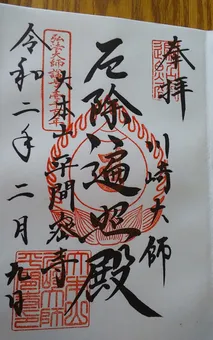 奉拝
川崎大師
厄除遍照殿
大本山平間寺
令和二年二月九日